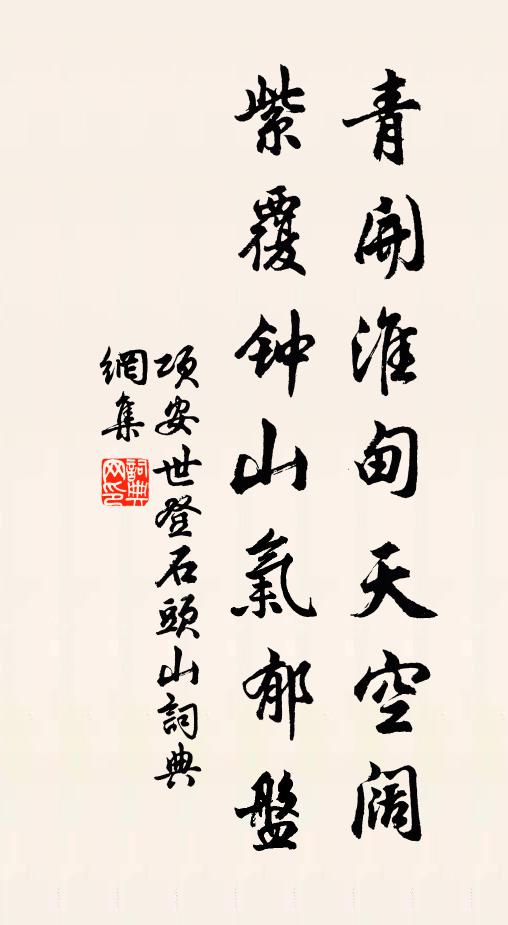 青開淮甸天空闊
紫覆钟山氣郁盤
項安世登石頭山詞典
網集
詞典
网印